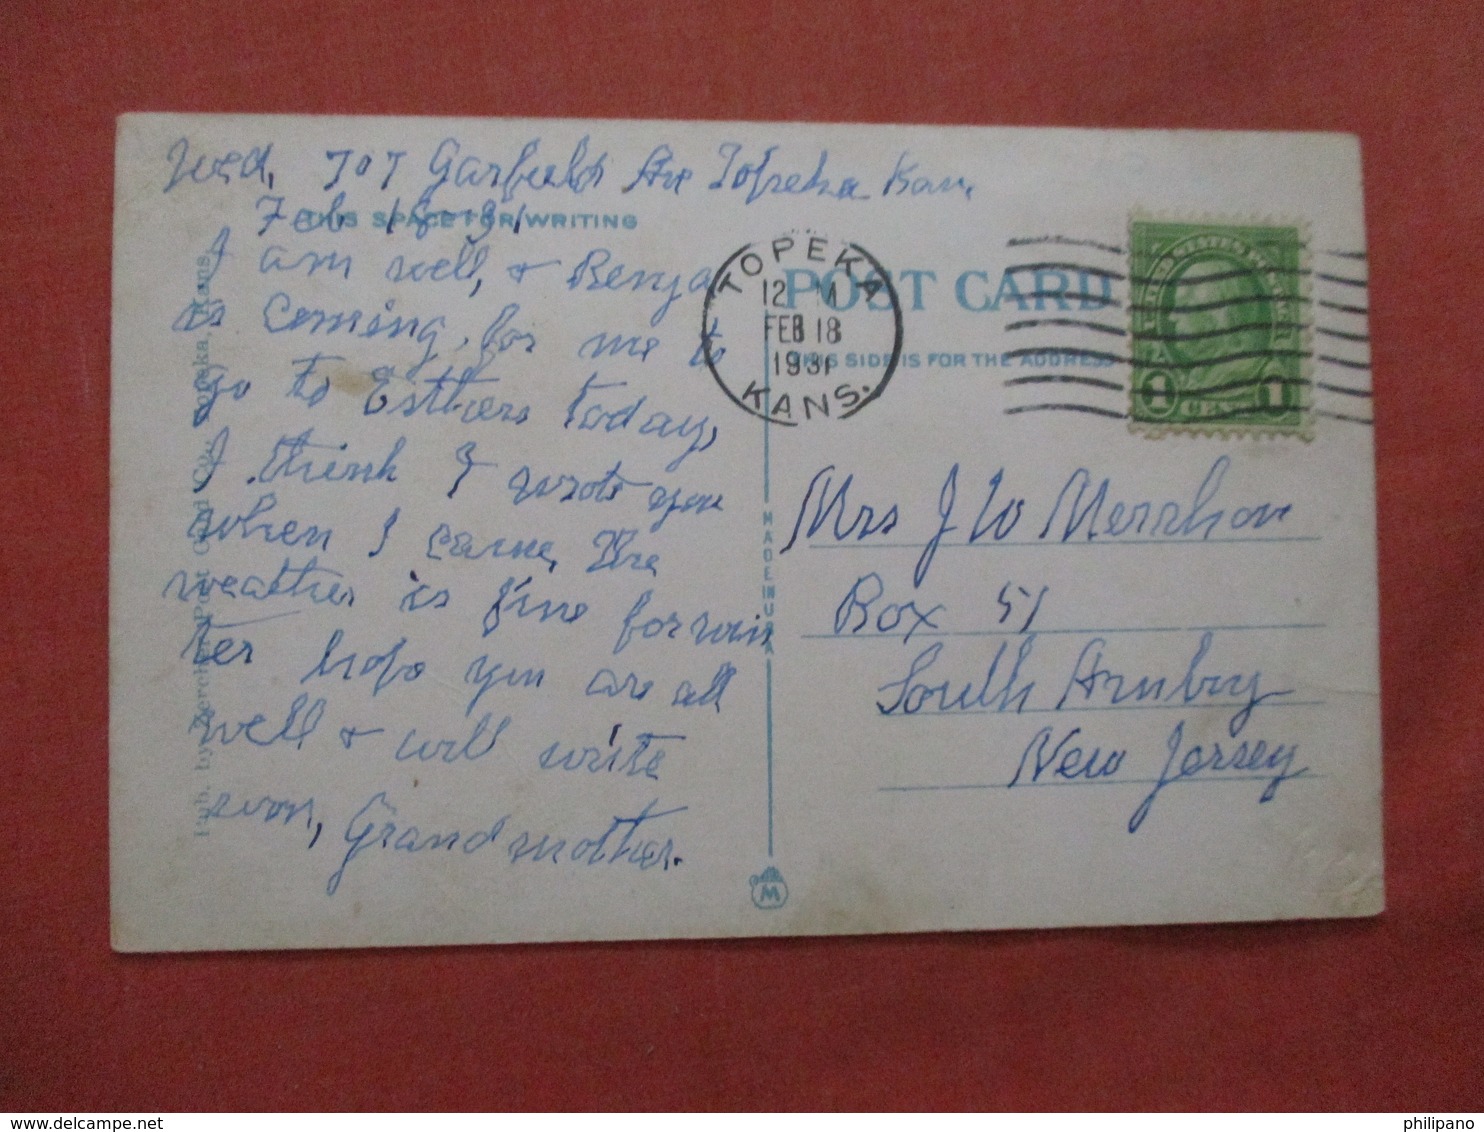 Wed, 707 Garfield Ave Topeka Kan,
Feb 18-31
THIS SPACE FOR WRITING
I am well, & Benja
is coming for me to
go to Esthers today,
I think I wrote you
when I came, The
weather is fine for win
ter hope you are all
well & will write
soon, Grandmother.
Pub. by Post Card Co., Topeka, Kans.
MADE IN U.S.A.
M
TOPEKA
12 M
FEB 18
1931
KANS.
POST CARD
THIS SIDE IS FOR THE ADDRESS
UNITED STATES POSTAGE
1 CENT 1
Mrs J W
Box 51
South Amboy
New Jersey
philipano